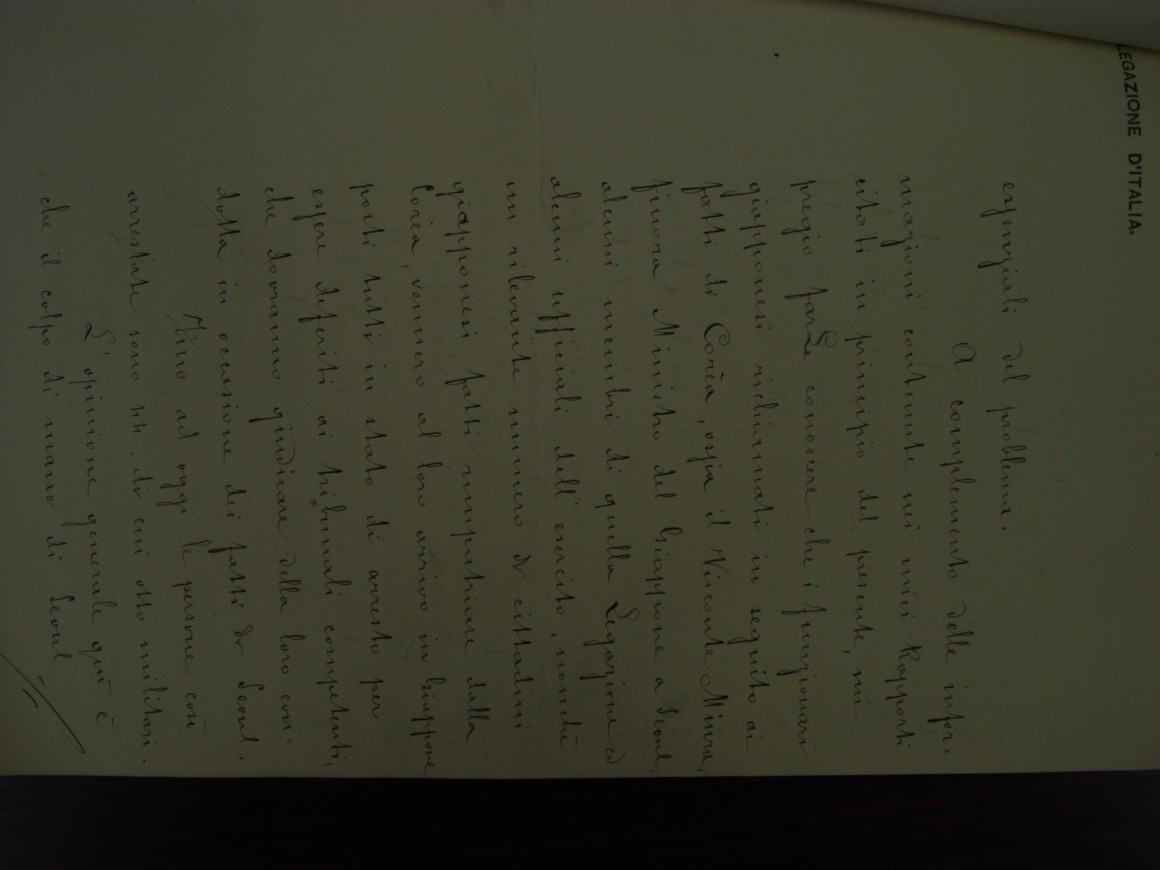 LEGAZIONE D'ITALIA.
essenziali del problema.
A complemento delle infor-
mazioni contenute nei miei Rapporti
citati in principio del presente, mi
pregio farLe conoscere che i funzionari
giapponesi richiamati in seguito ai
fatti di Corèa, ossia il Visconte Miura,
finora Ministro del Giappone a Seoul,
alcuni membri di quella Legazione ed
alcuni ufficiali dell'esercito, nonchè
un rilevante numero di cittadini
giapponesi fatti rimpatriare dalla
Corèa, vennero al loro arrivo in Giappone
posti tutti in stato di arresto per
essere deferiti ai tribunali competenti,
che dovranno giudicare della loro con-
dotta in occasione dei fatti di Seoul.
Fino ad oggi le persone così
arrestate sono 44. di cui otto militari.
L'opinione generale quì è
che il colpo di mano di Seoul